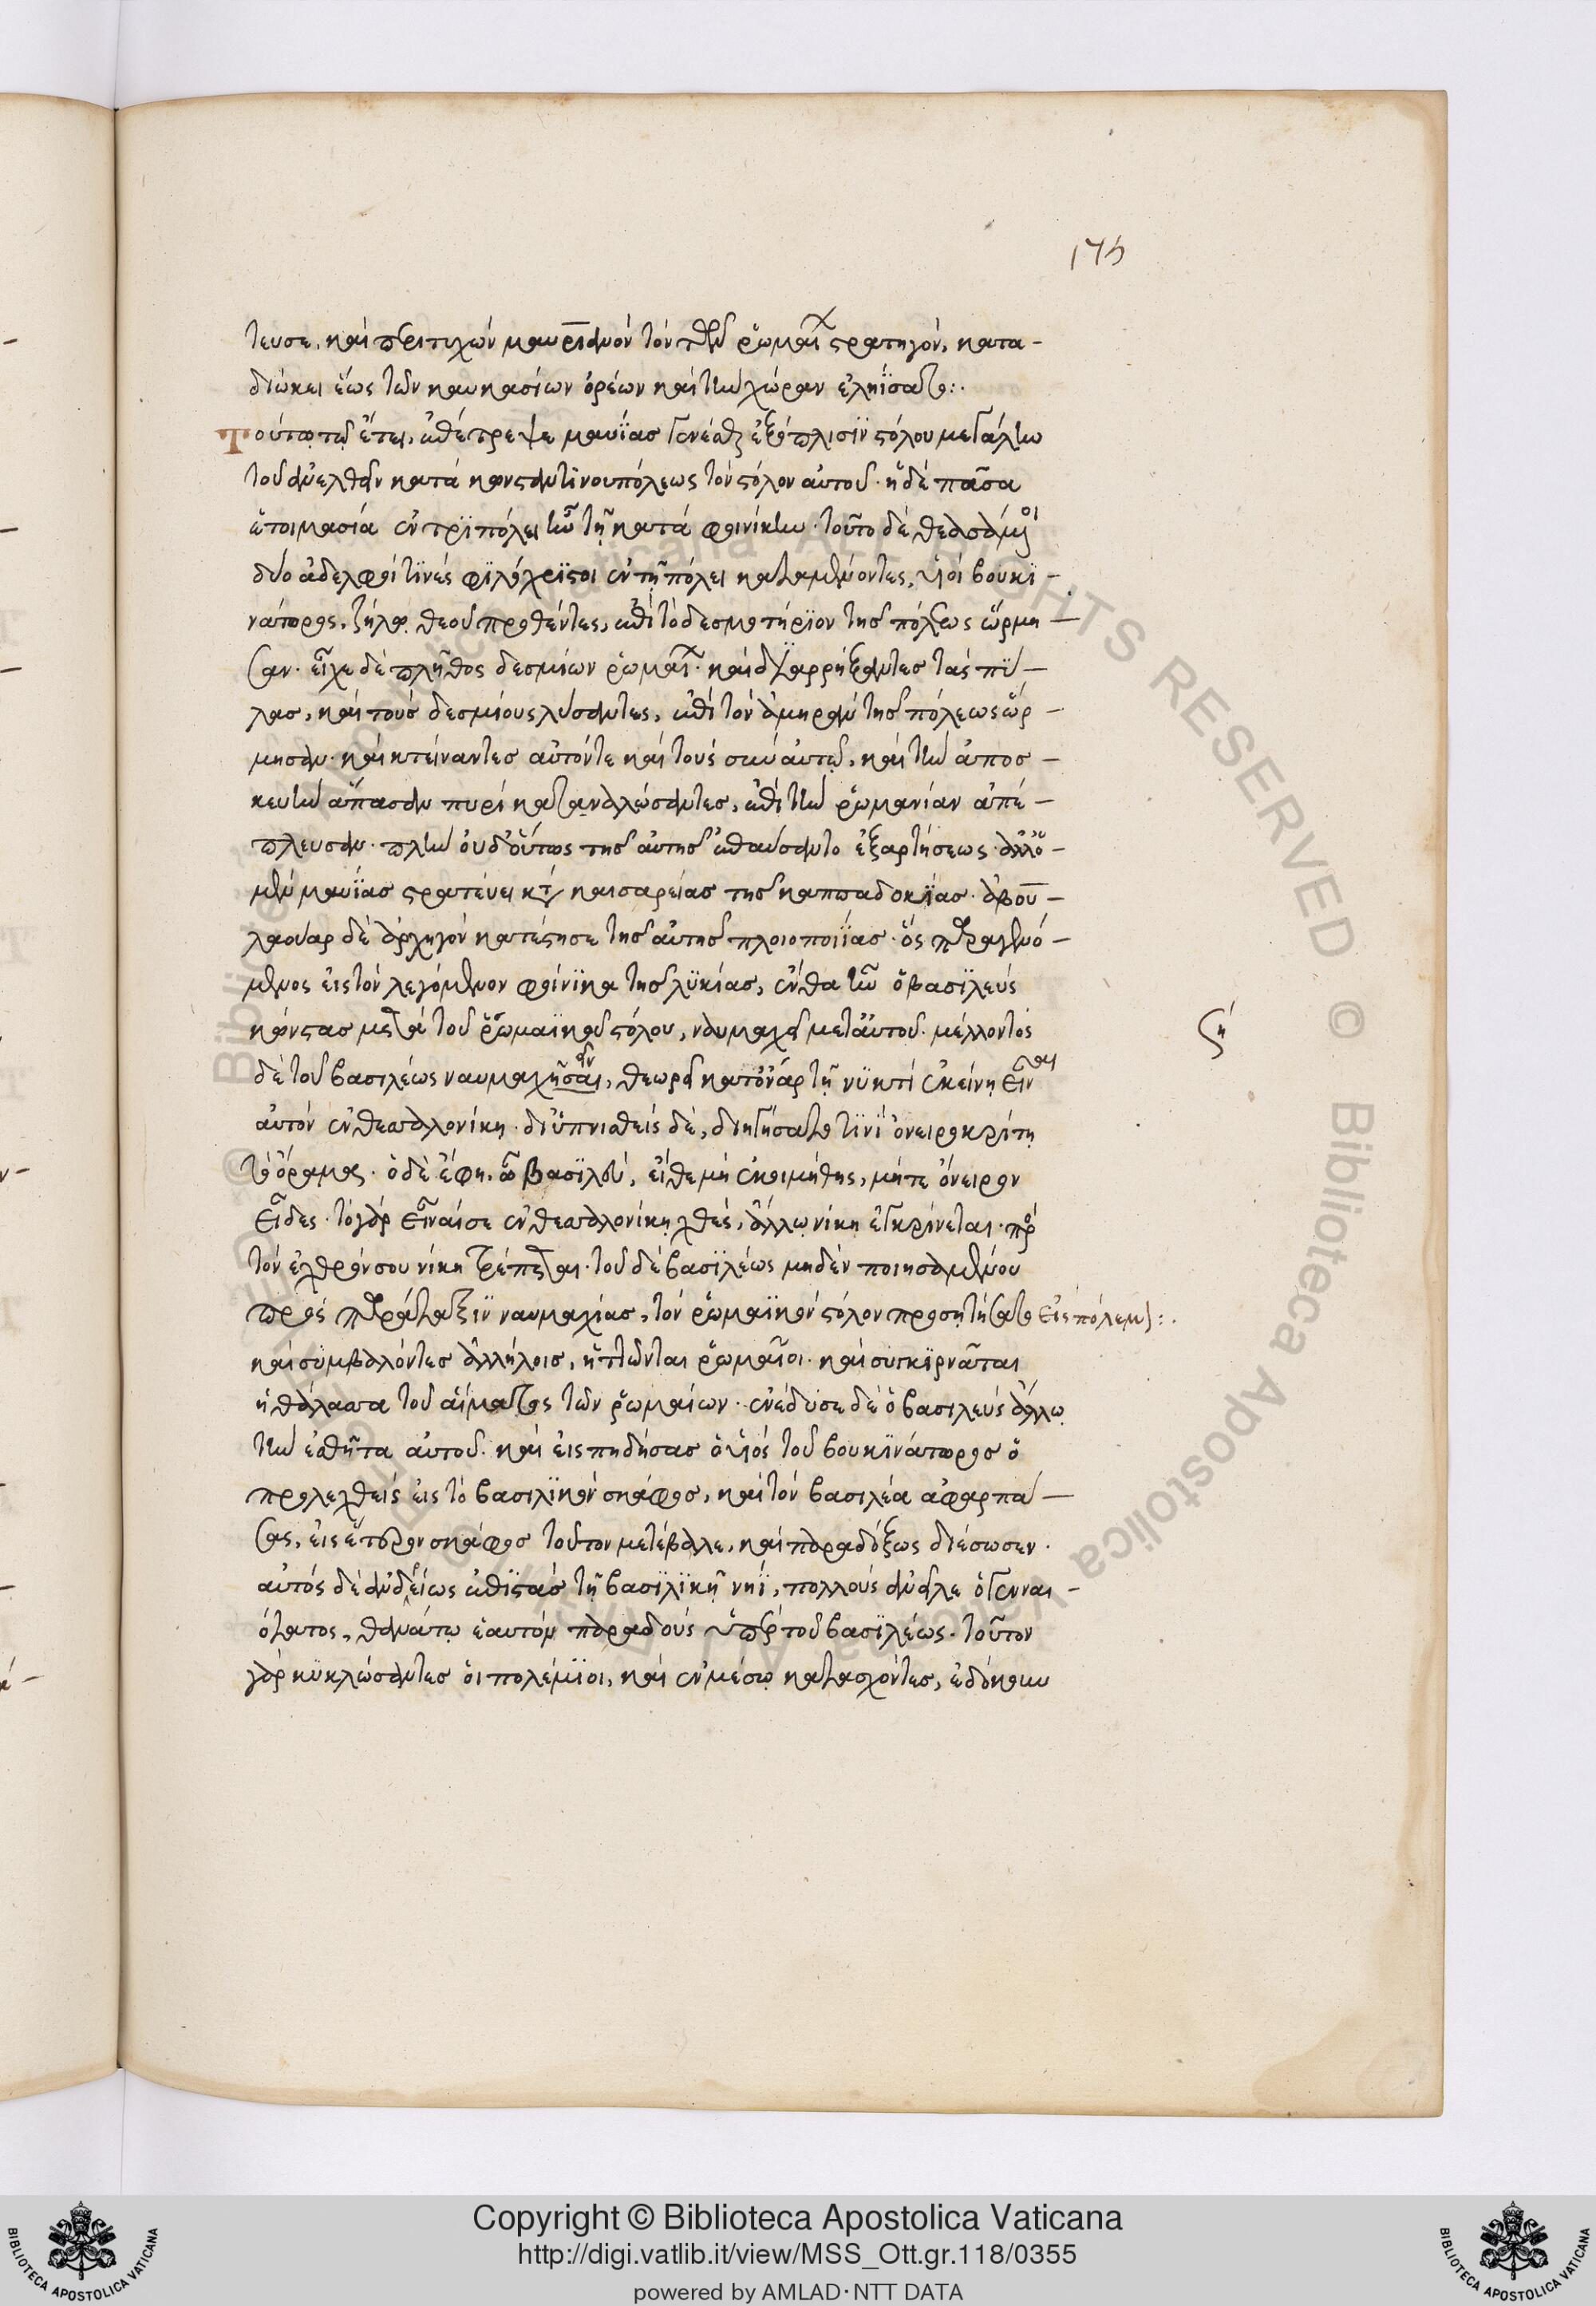 175
τευσε, καὶ περιτυχὼν μαυριανὸν τὸν τῶν ῥωμαί στρατηγόν, κατα-
διώκει ἕως τῶν καυκασίων ὀρέων καὶ τὴν χώραν ἐληΐσατο:.
Τούτω τῷ ἔτει, ἐπέτρεψε μαυΐας γενέσθαι ἐξόπλισϊν στόλου μεγάλην
τοῦ ἀνελθεῖν κατὰ κωνσταντινουπόλεως τὸν στόλον αὐτοῦ· ἡ δὲ πᾶσα
ἑτοιμασία ἐν τρϊπόλει ἦν τῇ κατὰ φοινίκην· τοῦτο δὲ θεασάμενοι
δύο ἀδελφοί τϊνες φϊλόχρϊστοι ἐν τῇ πόλει καταμένοντες, υἱοὶ βουκϊ-
νάτορος, ζήλῳ θεοῦ τρωθέντες, ἐπὶ τὸ δεσμωτήρϊον τῆς πόλεως ὥρμη-
σαν· εἶχε δὲ πλῆθος δεσμίων ῥωμαί· καὶ διαρρήξαντες τὰς πϋ-
λας, καὶ τοὺς δεσμίους λύσαντες, ἐπὶ τὸν ἀμηρὰν τῆς πόλεως ὥρ-
μησαν· καὶ κτείναντες αὐτόν τε καὶ τοὺς σὺν αὐτῷ, καὶ τὴν ἀποσ-
κευὴν ἅπασαν πυρὶ καταναλώσαντες, ἐπὶ τὴν ῥωμανίαν ἀπέ-
πλευσαν· πλὴν οὐδ' οὕτως τῆς αὐτῆς ἐπαύσαντο ἐξαρτήσεως· ἀλλ' ὁ
μὲν μαυΐας στρατεύει κατὰ καισαρείας τῆς καππαδοκΐας· ἀβου-
λαουὰρ δὲ ἀρχηγὸν κατέστησε τῆς αὐτῆς πλοιοποιΐας· ὃς παραγενό-
μενος εἰς τὸν λεγόμενον φοίνϊκα τῆς λϋκίας, ἔνθα ἦν ὁ βασϊλεὺς
κώνστας μετὰ τοῦ ῥωμαϊκοῦ στόλου, ναυμαχεῖ μετ' αὐτοῦ· μέλλοντος
δὲ τοῦ βασιλέως ναυμαχῆσαι, θεωρεῖ κατ' ὄναρ τῇ νϋκτὶ ἐκείνη εἶναι
αὐτὸν ἐν θεσσαλονίκη· διϋπνισθεὶς δέ, διηγήσατο τϊνὶ ὀνειροκρίτῃ
τὸ ὅραμα· ὁ δὲ ἔφη, ὦ βασϊλεῦ, εἴθε μὴ ἐκοιμήθης, μήτε ὄνειρον
εἶδες· τὸ γὰρ εἶναί σε ἐν θεσσαλονίκῃ θές, ἄλλῳ νίκη ἐγκρίνεται· πρὸς
τὸν ἐχθρόν σου νίκη τρέπεται· τοῦ δὲ βασϊλέως μηδὲν ποιησαμένου
πρὸς παράταξιν ναυμαχίας, τὸν ῥωμαϊκὸν στόλον προσητήσατο εἰς πόλεμον:.
καὶ σϋμβαλόντες ἀλλήλοις, ἡττῶνται ῥωμαῖοι· καὶ συγκϊρνᾶται
ἡ θάλασσα τοῦ αἵματος τῶν ῥωμαίων· ἐνέδυσε δὲ ὁ βασιλεὺς ἄλλῳ
τὴν ἐσθῆτα αὐτοῦ· καὶ εἰσπηδήσας ὁ υἱὸς τοῦ βουκϊνάτορος ὁ
προλεχθεὶς εἰς τὸ βασιλϊκὸν σκάφος, καὶ τὸν βασιλέα ἀφαρπά-
σας, εἰς ἕτερον σκάφος τοῦτον μετέβαλε, καὶ παραδόξως διέσωσεν·
αὐτὸς δὲ ἀνδρείως ἐπιστὰς τῇ βασϊλϊκῇ νηΐ, πολλοὺς ἀνεῖλε ὁ γενναι-
ότατος, θανάτῳ ἑαυτὸν παραδοὺς ὑπὲρ τοῦ βασϊλέως· τοῦτον
γὰρ κϋκλώσαντες οἱ πολέμϊοι, καὶ ἐν μέσῳ κατασχόντες, ἐδόκουν
Copyright © Biblioteca Apostolica Vaticana
http://digi.vatlib.it/view/MSS_Ott.gr.118/0355
powered by AMLAD·NTT DATA